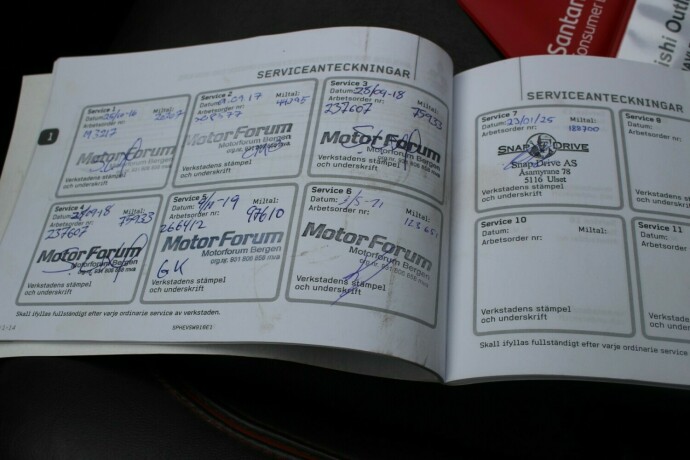 SERVICEANTECKNINGAR
1
Service 1
Datum:
Miltal:
Arbetsorder nr:
MotorForum
Verkstadens stämpel
och underskrift
Service 2
Datum: 09.17
Miltal:
44295
Arbetsorder nr:
MotorForum
Verkstadens stämpel
och underskrift
Service 3
Datum: 28/09-18
Miltal:
75933
Arbetsorder nr:
237607
MotorForum
Motorforum Bergen
Verkstadens stämpel
och underskrift
Service 4
Datum: 28/09-18
Miltal:
75933
Arbetsorder nr:
237607
MotorForum
Motorforum Bergen
Verkstadens stämpel
och underskrift
Service 5
Datum: -19
Miltal:
97610
Arbetsorder nr:
266412
MotorForum
Motorforum Bergen
GK
Verkstadens stämpel
och underskrift
Service 6
Datum:
Miltal:
Arbetsorder nr:
MotorForum
Motorforum Bergen
Verkstadens stämpel
och underskrift
Skall ifyllas fullständigt efter varje ordinarie service av verkstaden.
SERVICEANTECKNINGAR
Service 7
Datum: 23/01/25
Miltal:
Arbetsorder nr:
SNAP DRIVE
Snap Drive AS
Åsamyrane 78
5116 Ulset
Verkstadens stämpel
och underskrift
Service 8
Datum:
Arbetsorder
Verkstadens
och under
Service 10
Datum:
Miltal:
Arbetsorder nr:
Verkstadens stämpel
och underskrift
Service 11
Datum:
Arbetsorder
Verkstade
och under
Skall ifyllas fullständigt efter varje ordinarie service
Santan
Consumer
ishi Outl